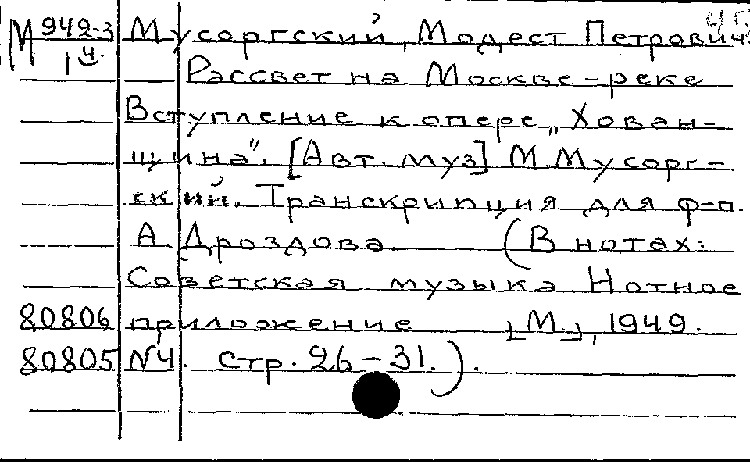 М 942-3 Мусоргский, Модест Петрович
14 Рассвет на Москве-реке
Вступление к опере „Хован-
щина". [Авт. муз] М. Мусорг-
ский. Транскрипция для ф-п.
А. Дроздова (В нотах:
Советская музыка Нотное
80806 приложение [М.], 1949.
80805 N4. стр. 26-31.).